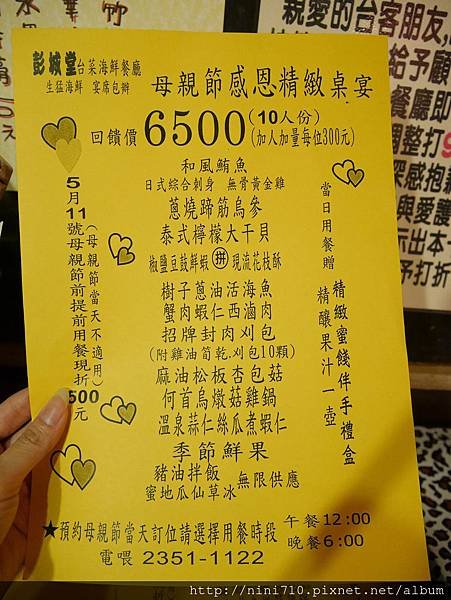 彭城堂台菜海鮮餐廳
生猛海鮮 宴席包辦
母親節感恩精緻桌宴
回饋價 6500(10人份)
(加人加量每位300元)
和風鮪魚
日式綜合刺身 無骨黃金雞
蔥燒蹄筋烏參
泰式檸檬大干貝
椒鹽豆鼓鮮蝦 拼 現流花枝酥
樹子蔥油活海魚
蟹肉蝦仁西滷肉
招牌封肉刈包
(附雞油筍乾刈包10顆)
麻油松板杏包菇
何首烏燉菇雞鍋
溫泉蒜仁絲瓜煮蝦仁
季節鮮果
豬油拌飯 無限供應
蜜地瓜仙草冰
5月11號母親節前提前用餐現折500元
(母親節當天不適用)
當日用餐贈
精緻蜜餞伴手禮盒
精釀果汁一壺
★預約母親節當天訂位請選擇用餐時段
午餐12:00
晚餐6:00
電喂 2351-1122
親愛的台客朋友,
給予顧
餐廳即
調整打9
深感抱
與愛護
示出本
予打折
http://nini710.pixnet.net/album